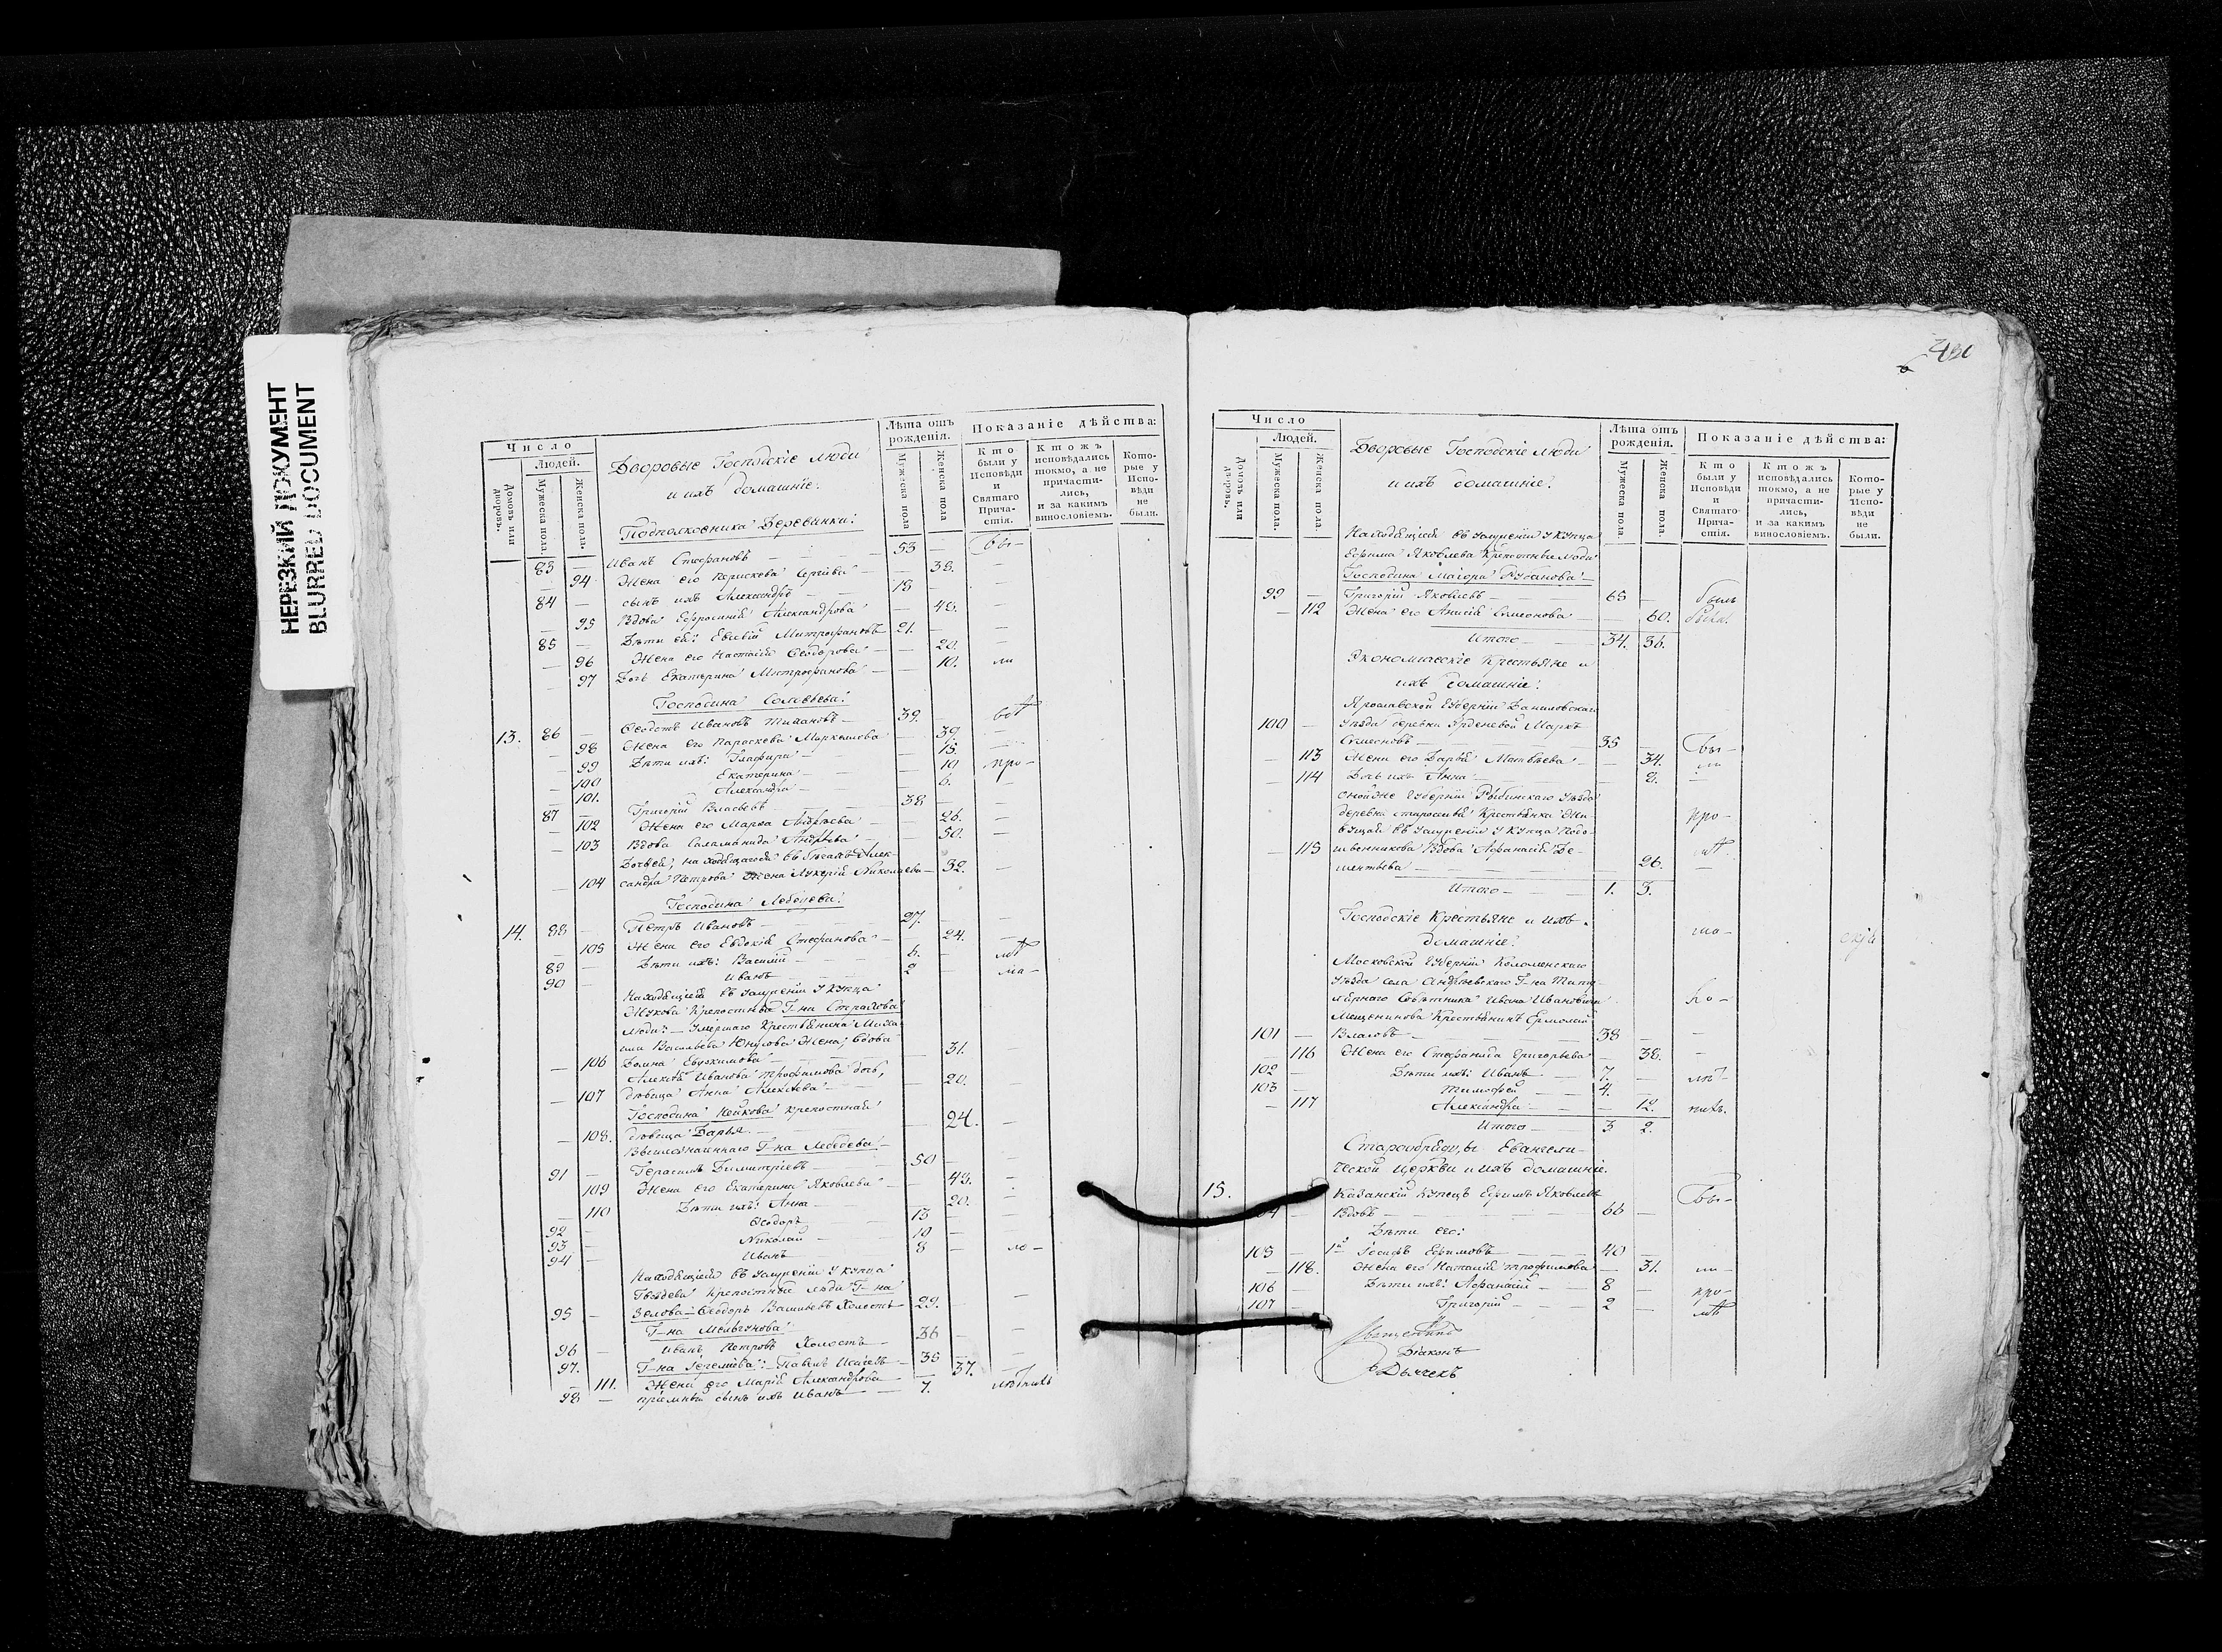 НЕРЕЗКИЙ ДОКУМЕНТ
BLURRED DOCUMENT
Число
Людей.
Домовъ или дворовъ.
Мужеска пола.
Женска пола.
Дворовые Господскіе люди
и ихъ домашніе.
Лѣта отъ рожденія.
Мужеска пола
Женска пола
Показаніе дѣйства:
Кто были у Исповѣди и Святаго Причастія.
Ктожъ исповѣдались токмо, а не причастились, и за какимъ винословіемъ.
Которые у Исповѣди не были.
Подполковника Деревинки:
83 — Иванъ Стефановъ — 53 — бы-
— 94 Жена его Парискева Сергіева — 38. —
84 — сынъ ихъ Александръ — 18 — —
— 95 Вдова Ефросинія Александрова — 48. —
85 — Дѣти ея: Евсевій Митрофановъ 21. — —
— 96 Жена его Настасія Ѳеодорова — 20. —
— 97 Дочь Екатерина Митрофанова — 10. ли
Господина Соловьева:
13. 86 — Ѳеодотъ Ивановъ — 39. —
— 98 Жена его Параскева — 39. —
— 99 Дѣти ихъ: Глафира — 15. —
— 100 Екатерина — 10 про-
— 101. Александра — 6. —
87 — Григорій Власьевъ — 38 — —
— 102 Жена его Марѳа Андреева — 26. —
— 103 Вдова Саламанида Андреева — 50. —
Дочь ея, находящагося въ бегахъ Алек-
— 104 сандра Петрова Жена Лукерія Николаева — 32. —
Господина Лебедева:
14. 88 — Петръ Ивановъ — 27. — —
— 105 Жена его Евдокія Стефанова — 24. —
89 — Дѣти ихъ: Василій — 6. —
90 — Иванъ — 2 —
Находящіеся въ услуженіи у купца
Жукова Крепостные Г-на Страхова
люди: — Умершаго Крестьянина Миха-
ила Васильева Жена, вдова
— 106 Домна Евдокимова — 31. —
Алексѣя Иванова Трофимова дочь,
— 107 девица Анна Алексѣева — 20. —
Господина Кейкова крепостная
— 108. девица Дарья — 24. —
Вышеозначеннаго Г-на Лебедева
91 — Герасимъ Димитріевъ — 50 — —
— 109 Жена его Екатерина Яковлева — 43. —
— 110 Дѣти ихъ: Анна — 20. —
92 — Ѳеодоръ 13 — —
93 — Николай — 10 — —
94 — Иванъ — 8 —
Находящіеся въ услуженіи у купца
Гвоздева Крепостные люди Г-на
95 — Зелова: Ѳеодоръ Васильевъ Холостъ 29. — —
Г-на Мельгунова
96 — Иванъ Петровъ Холостъ — 36 — —
97. — Павелъ Исаевъ — 35 — —
— 111. Жена его Марія Александрова — 37. —
98 — пріемный сынъ ихъ Иванъ — 7. лѣтнихъ
Число
Людей.
Домовъ или дворовъ.
Мужеска пола.
Женска пола.
Дворовые Господскіе Люди
и ихъ домашніе.
Лѣта отъ рожденія.
Мужеска пола.
Женска пола.
Показаніе дѣйства:
Кто были у Исповѣди и Святаго Причастія.
Ктожъ исповѣдались токмо, а не причастились, и за какимъ винословіемъ.
Которые у Исповѣди не были.
Находящіеся въ услуженіи у Купца
Ефима Яковлева Крепостные люди
Господина Маіора Рубанова —
99 — Григорій Яковлевъ — 65 — былъ
— 112 Жена его Анисія Симеонова — 60. была
Итого — 34. 36.
Экономическіе Крестьяне и
ихъ домашніе:
Ярославской Губерніи Даниловскаго
100 — Уезда деревни Марко
Симеоновъ — 35 бы-
— 113 Жена его Дарья Матвѣева — 34. ли
— 114 Дочь ихъ Анна — 2. —
тойже Губерніи Рыбинскаго уезда
деревни Крестьянка Жи- про-
вущая въ услуженіи у Купца Подо-
— 115 швенникова Вдова Афанасія Де-
ментьева — 26. —
Итого — 1. 3.
Господскіе Крестьяне и ихъ
домашніе:
Московской Губерніи Коломенскаго
Уезда села Андреевскаго Г-на Титу-
лярнаго Советника Ивана Ивановича
Мещенинова Крестьянинъ Ермолай
101 — Власовъ — 38 — —
— 116 Жена его Стефанида Григорьева — 38. —
102 — Дѣти ихъ: Иванъ — 7. —
103 — Тимофей — 4.
— 117 Александра — 12.
Итого — 3 2.
Старообрядцы Евангели-
ческой Церкви и ихъ домашніе.
15. Казанскій Купецъ Ефимъ Яковлевъ бы-
04 — Вдовъ — 66 —
Дѣти его:
105 — 1й Іосифъ Ефимовъ — 40 —
— 118. Жена его Наталія Трофимова — 31. ли-
106 — Дѣти ихъ: Афанасій — 8 про-
107 — Григорій — 2 —
Діаконъ